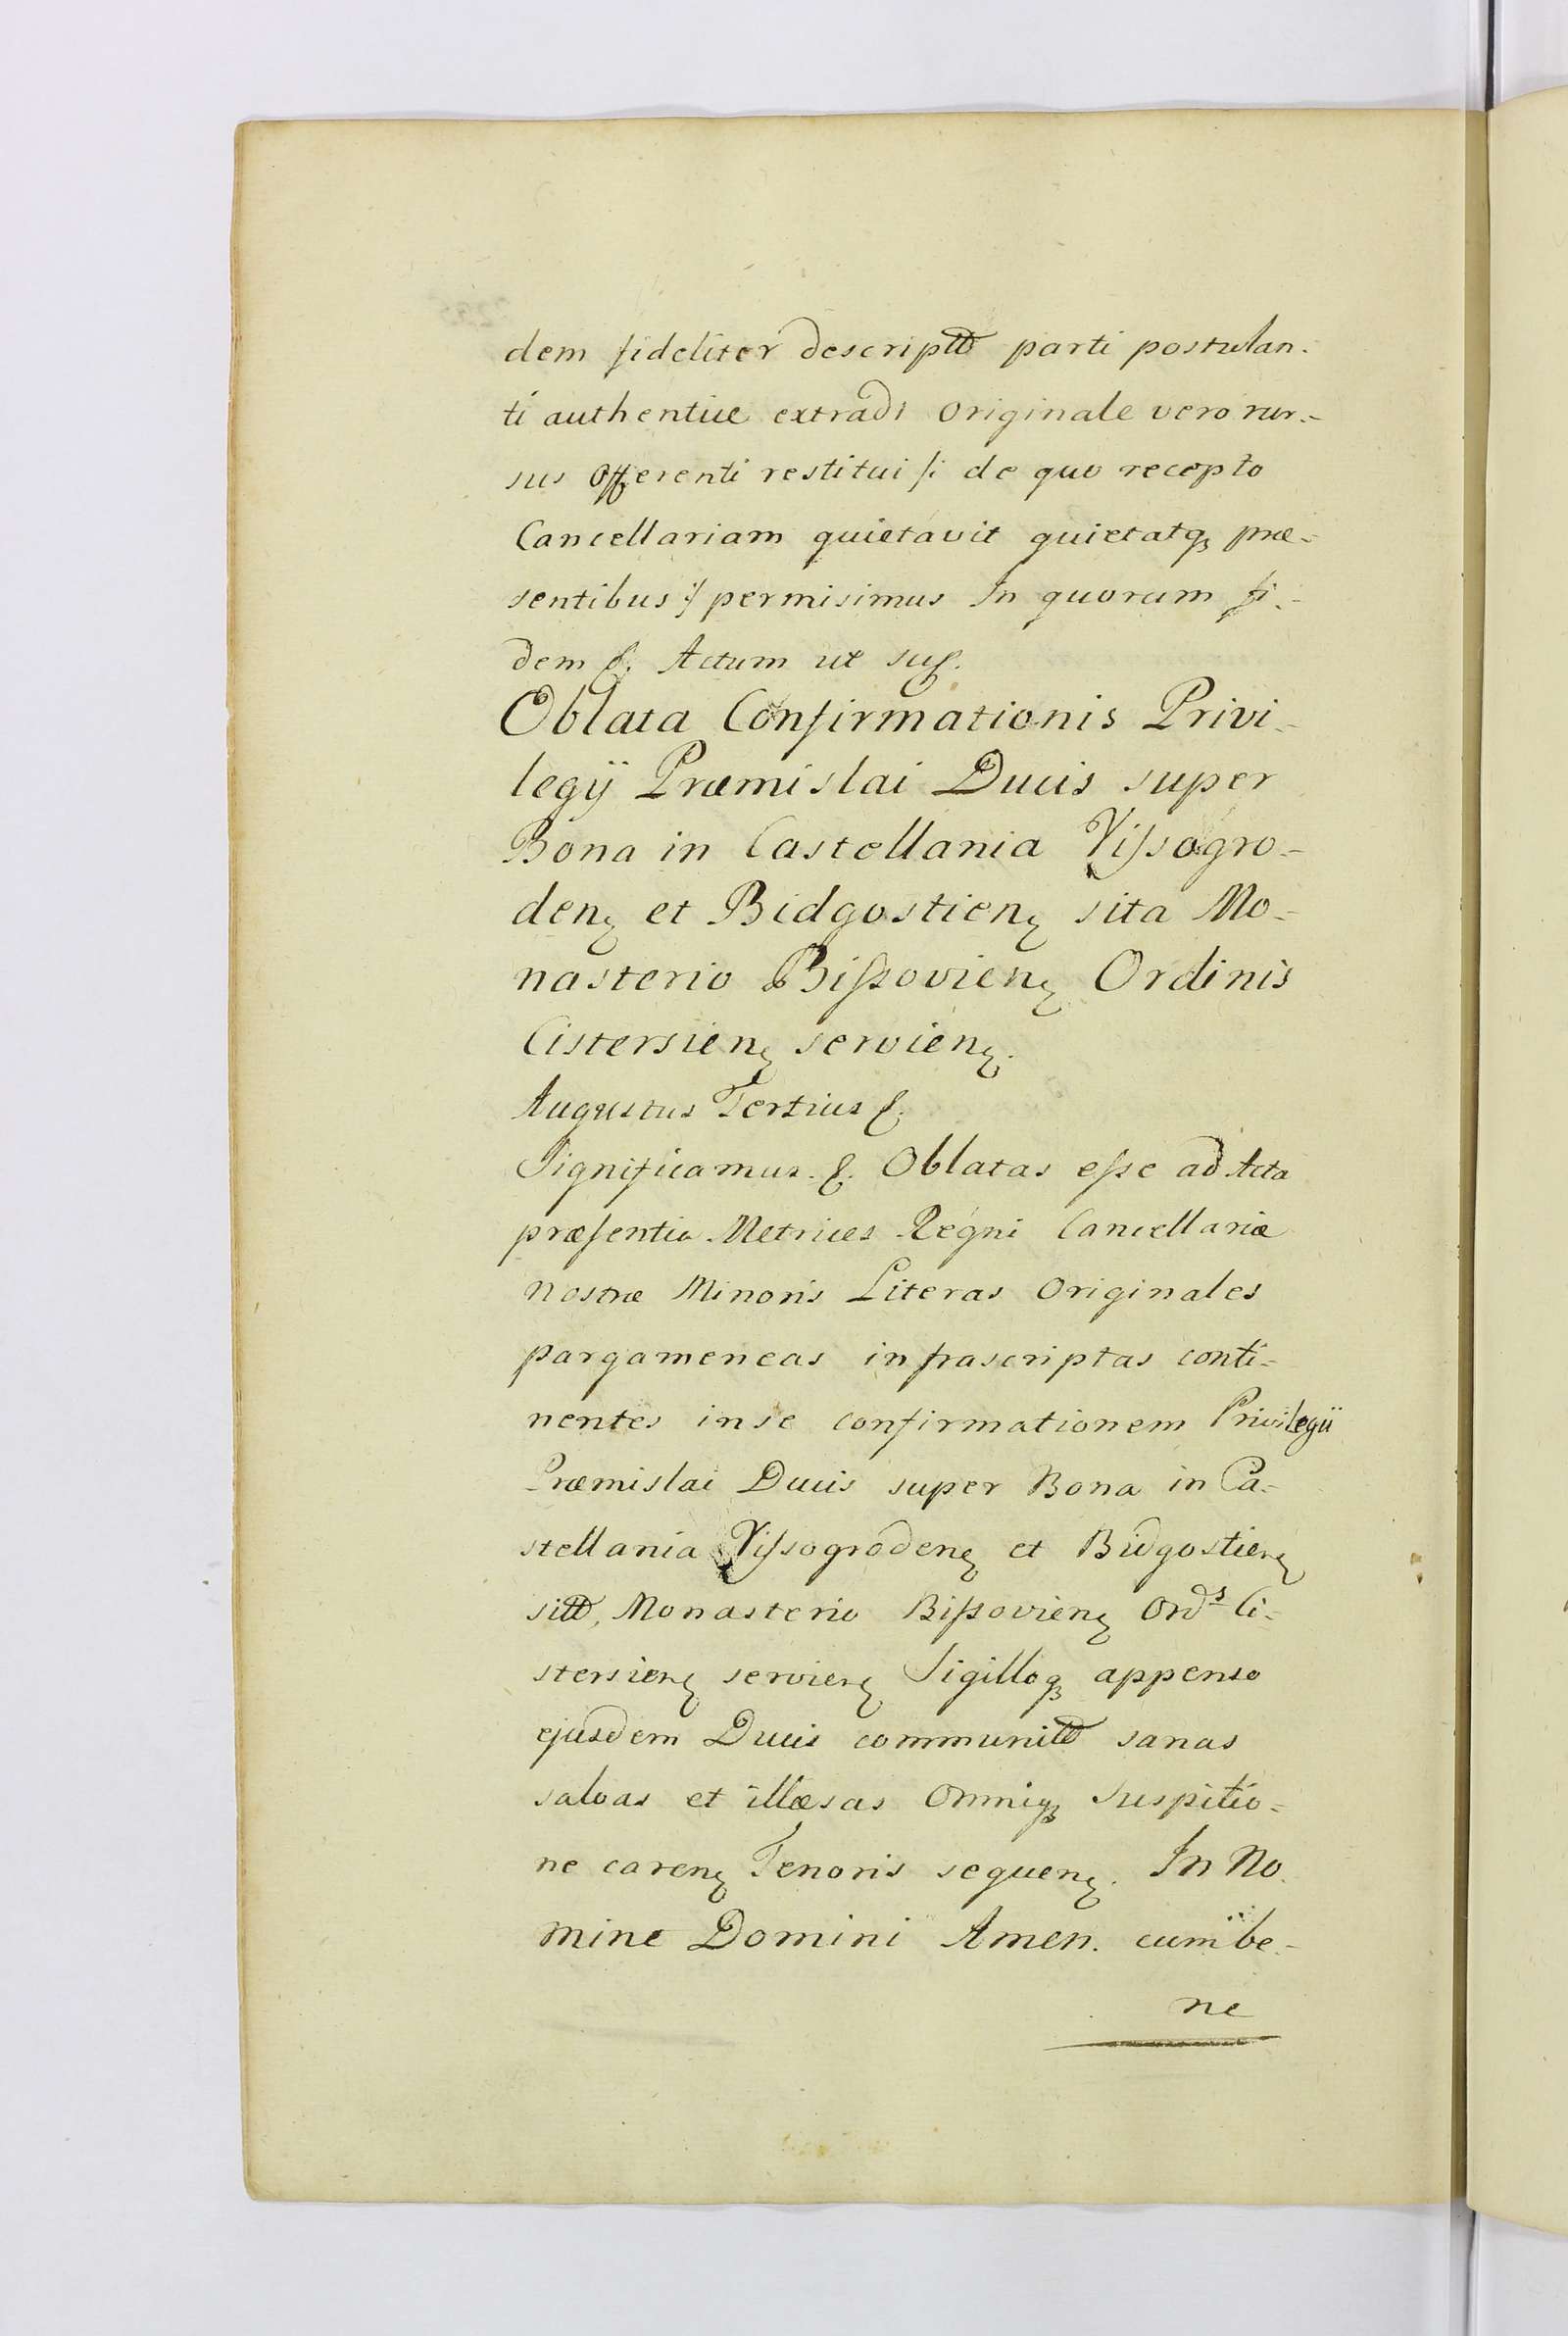 dem fideliter descriptã parti postulan-
ti authentice extradi Originale vero rur-
sus Offerenti restitui /: de quo recepto
Cancellariam quietavit quietatq præ-
sentibus :/ permisimus In quorum fi-
dem &. Actum ut sup.
Oblata Confirmationis Privi-
legÿ Præmislai Ducis super
Bona in Castellania Vissogro-
den. et Bidgostien. sita Mo-
nasterio Biszovien. Ordinis
Cistersien. servien.
Augustus Tertius &.
Significamus. &. Oblatas esse ad Acta
præsentia Metrices Regni Cancellariæ
nostræ Minoris Literas Originales
pargameneas infrascriptas conti-
nentes in se confirmationem Privilegii
Præmislai Ducis super Bona in Ca-
stellania Vissogroden. et Bidgostien.
sitã, Monasterio Biszovien. Ord.s Ci-
stersien. servien. Sigilloq appenso
ejusdem Ducis communitã sanas
salvas et illæsas Omniq Suspitio-
ne caren. Tenoris sequen. In No
mine Domini Amen. cum be-
ne